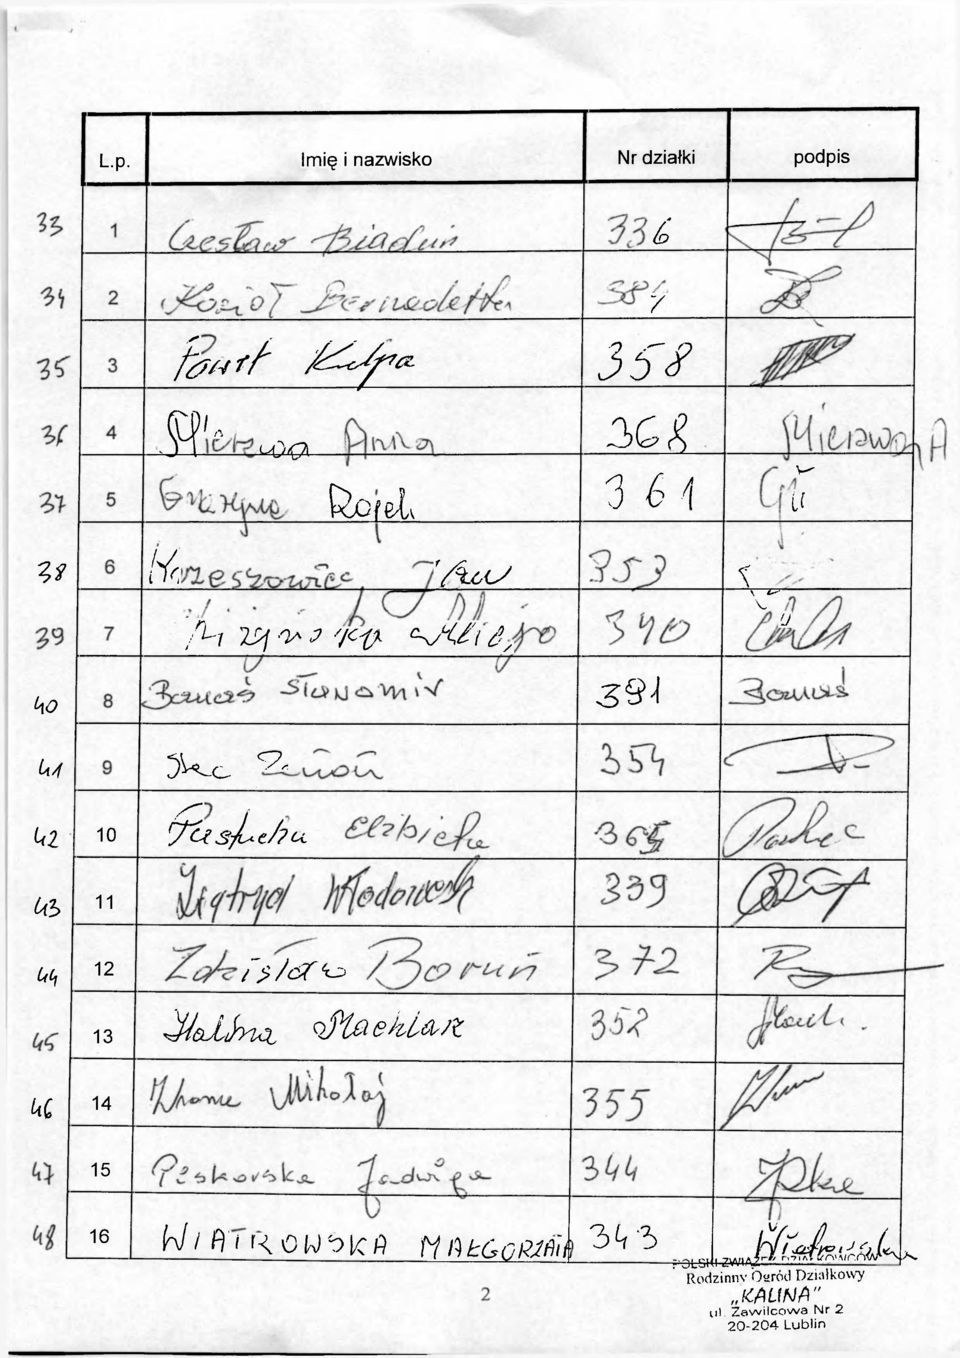 L.p. Imię i nazwisko Nr działki podpis
33 1 Czesław Biaduń 336
34 2 Kozioł Bernadetta 384
35 3 Paweł Kulpa 358
36 4 Mierzwa Anna 368 Mierzwa A
37 5 Grażyna Rojek 361
38 6 Krzeszowiec Jan 353
39 7 Alicja 340
40 8 Banaś Sławomir 391 Banaś
41 9 Stec Zenon 354
42 10 Pastucha Elżbieta
43 11 339
44 12 Zdzisław Boruń 372
45 13 Halina Machlarz 352
46 14 Mikołaj 355
47 15 Piskorska Jadwiga 344
48 16 WIATROWSKA MAŁGORZATA 343 Wiatrowska
POLSKI ZWIĄZEK DZIAŁKOWCÓW
2 Rodzinny Ogród Działkowy
„KALINA"
ul. Zawilcowa Nr 2
20-204 Lublin